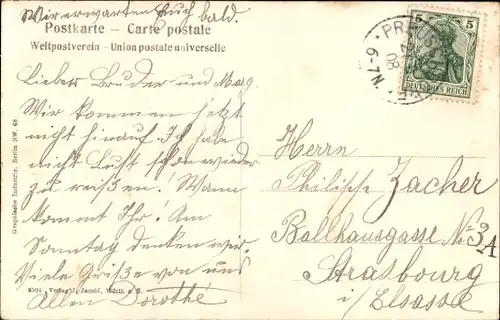 Wir erwarten Euch bald.
Postkarte – Carte postale
Weltpostverein – Union postale universelle
Lieber Bruder und Marg.
Wir kommen jetzt
nicht hinauf. Ich habe
nicht Lust schon wieder
zu reißen! Wann
kommt Ihr! Am
Sonntag denken wir.
Viele Grüße von uns
Allen Dorothé
Herrn
Philipp Zacher
Ballhausgasse No 3A
Strasbourg
i/Elsass
5 5
DEUTSCHES REICH
6-7 N.
08
Graphische Industrie, Berlin NW. 68
Verlag J. Jacobi, Wörth a. S.